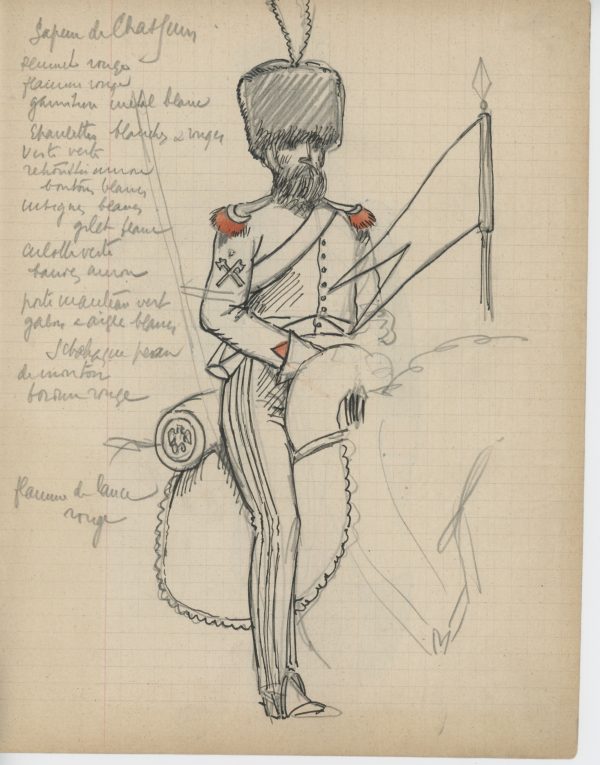 Sapeur de Chasseurs
plumet rouge
flamme rouge
garniture métal blanc
Epaulettes blanches & rouges
Veste verte
boutons blancs
insignes blancs
gilet
culotte verte
porte manteau vert
galon & aigle blancs
Schabraque peau
de mouton
rouge
flamme de lance
rouge